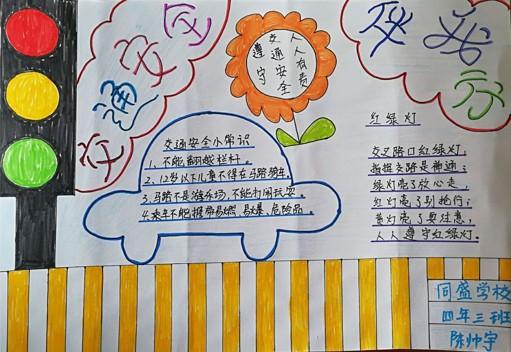 交通安全
从我
行
遵守
交通安全
人人有责
交通安全小常识
1.不能翻越栏杆。
2.12岁以下儿童不得在马路骑车。
3.马路不是游乐场,不能打闹玩耍。
4.乘车不能携带易燃、易爆、危险品。
红绿灯
交叉路口红绿灯,
指挥交路是神通;
绿灯亮了放心走,
红灯亮了别抢行;
黄灯亮了要注意,
人人遵守红绿灯。
同盛学校
四年三班
陈帅宇